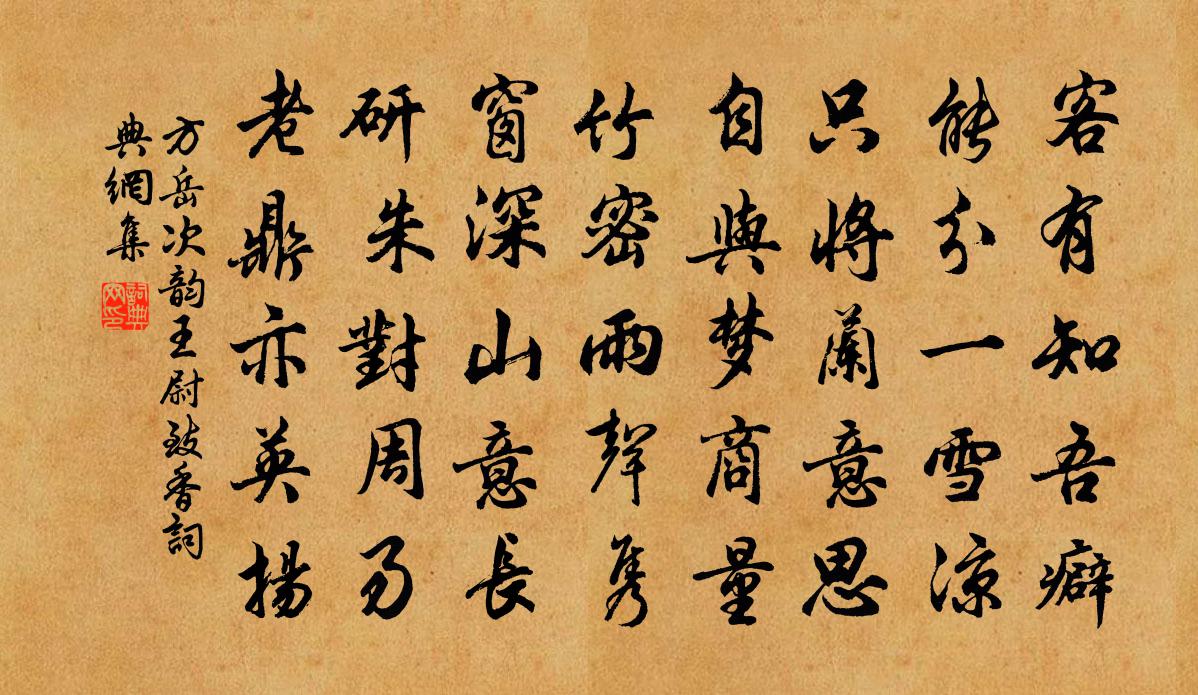 客有知吾癖
能分一雪涼
只將蘭意思
自與梦商量
竹密雨聲雋
窗深山意長
研朱對周易
老鼎亦英揚
方岳次韵王尉致香詞
典網集
詞典網印